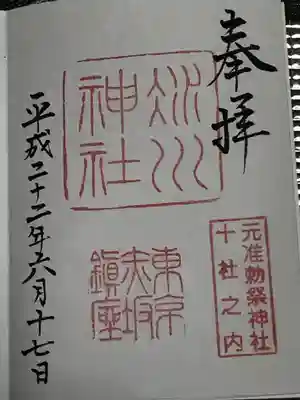 奉拝
元准勅祭神社
十社之内
冰川
神社
東京
赤坂
鎮座
平成二十二年六月十七日